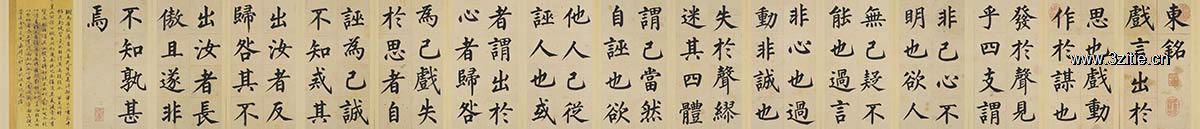 東銘
戲言出於
思也戲動
作於謀也
發於聲見
乎四支謂
非己心不
明也欲人
無己疑不
能也過言
非心也過
動非誠也
失於聲繆
迷其四體
謂己當然
自誣也欲
他人己從
誣人也或
者謂出於
心者歸咎
為己戲失
於思者自
誣為己誠
不知戒其
出汝者反
歸咎其不
出汝者長
傲且遂非
不知孰甚
焉
www.3zitie.cn